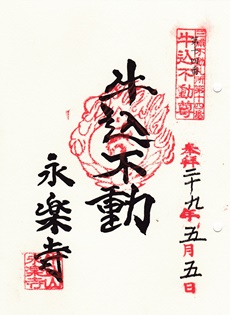 牛込不動尊
奉拝 二十九年五月五日
牛込不動
永楽寺